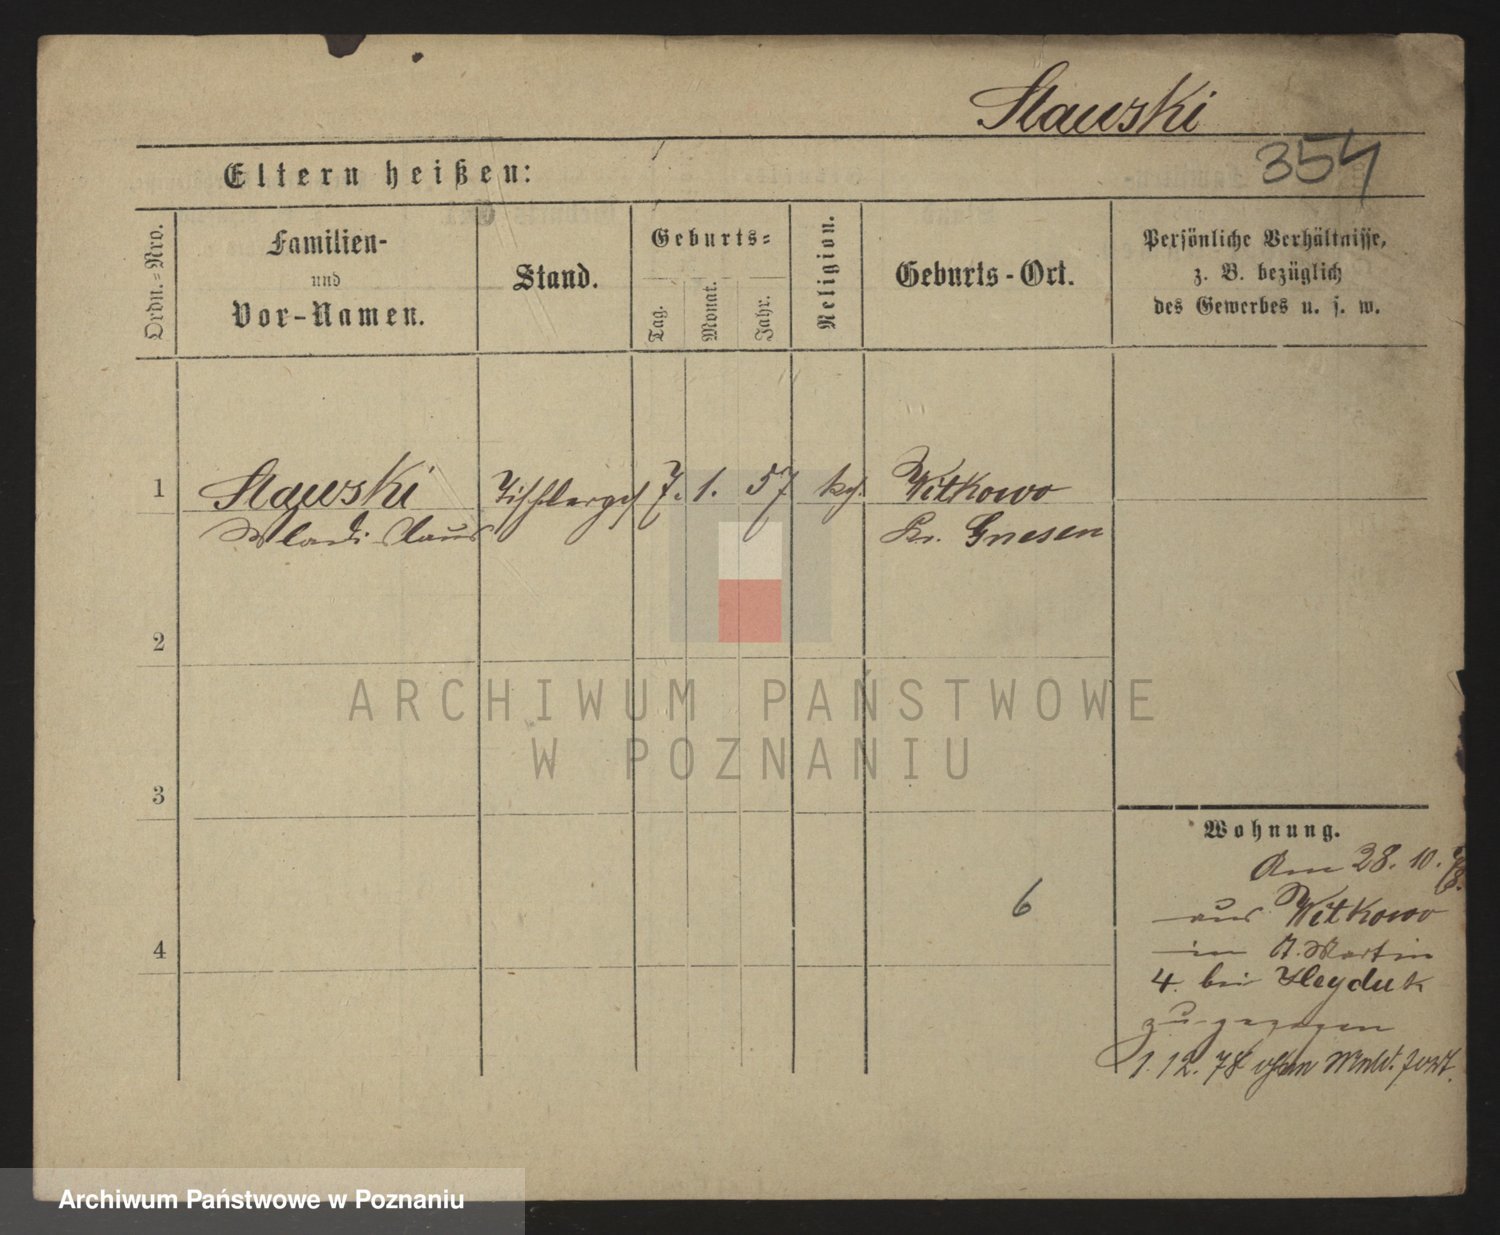 Slawski
354
Eltern heißen:
Ordn.=Nro.
Familien-
und
Vor-Namen.
Stand.
Geburts=
Tag.
Monat.
Jahr.
Religion.
Geburts-Ort.
Persönliche Verhältnisse,
z. B. bezüglich
des Gewerbes u. s. w.
1
Slawski
Wladislaus
Tischlerges
7. 1. 57
kth.
Witkowo
Kr. Gnesen
2
3
4
6
Wohnung.
Am 28. 10. 78.
aus Witkowo
in St. Martin
4. bei Heyduk
zugezogen
1. 12. 78 ohne fort.
ARCHIWUM PAŃSTWOWE
W POZNANIU
Archiwum Państwowe w Poznaniu